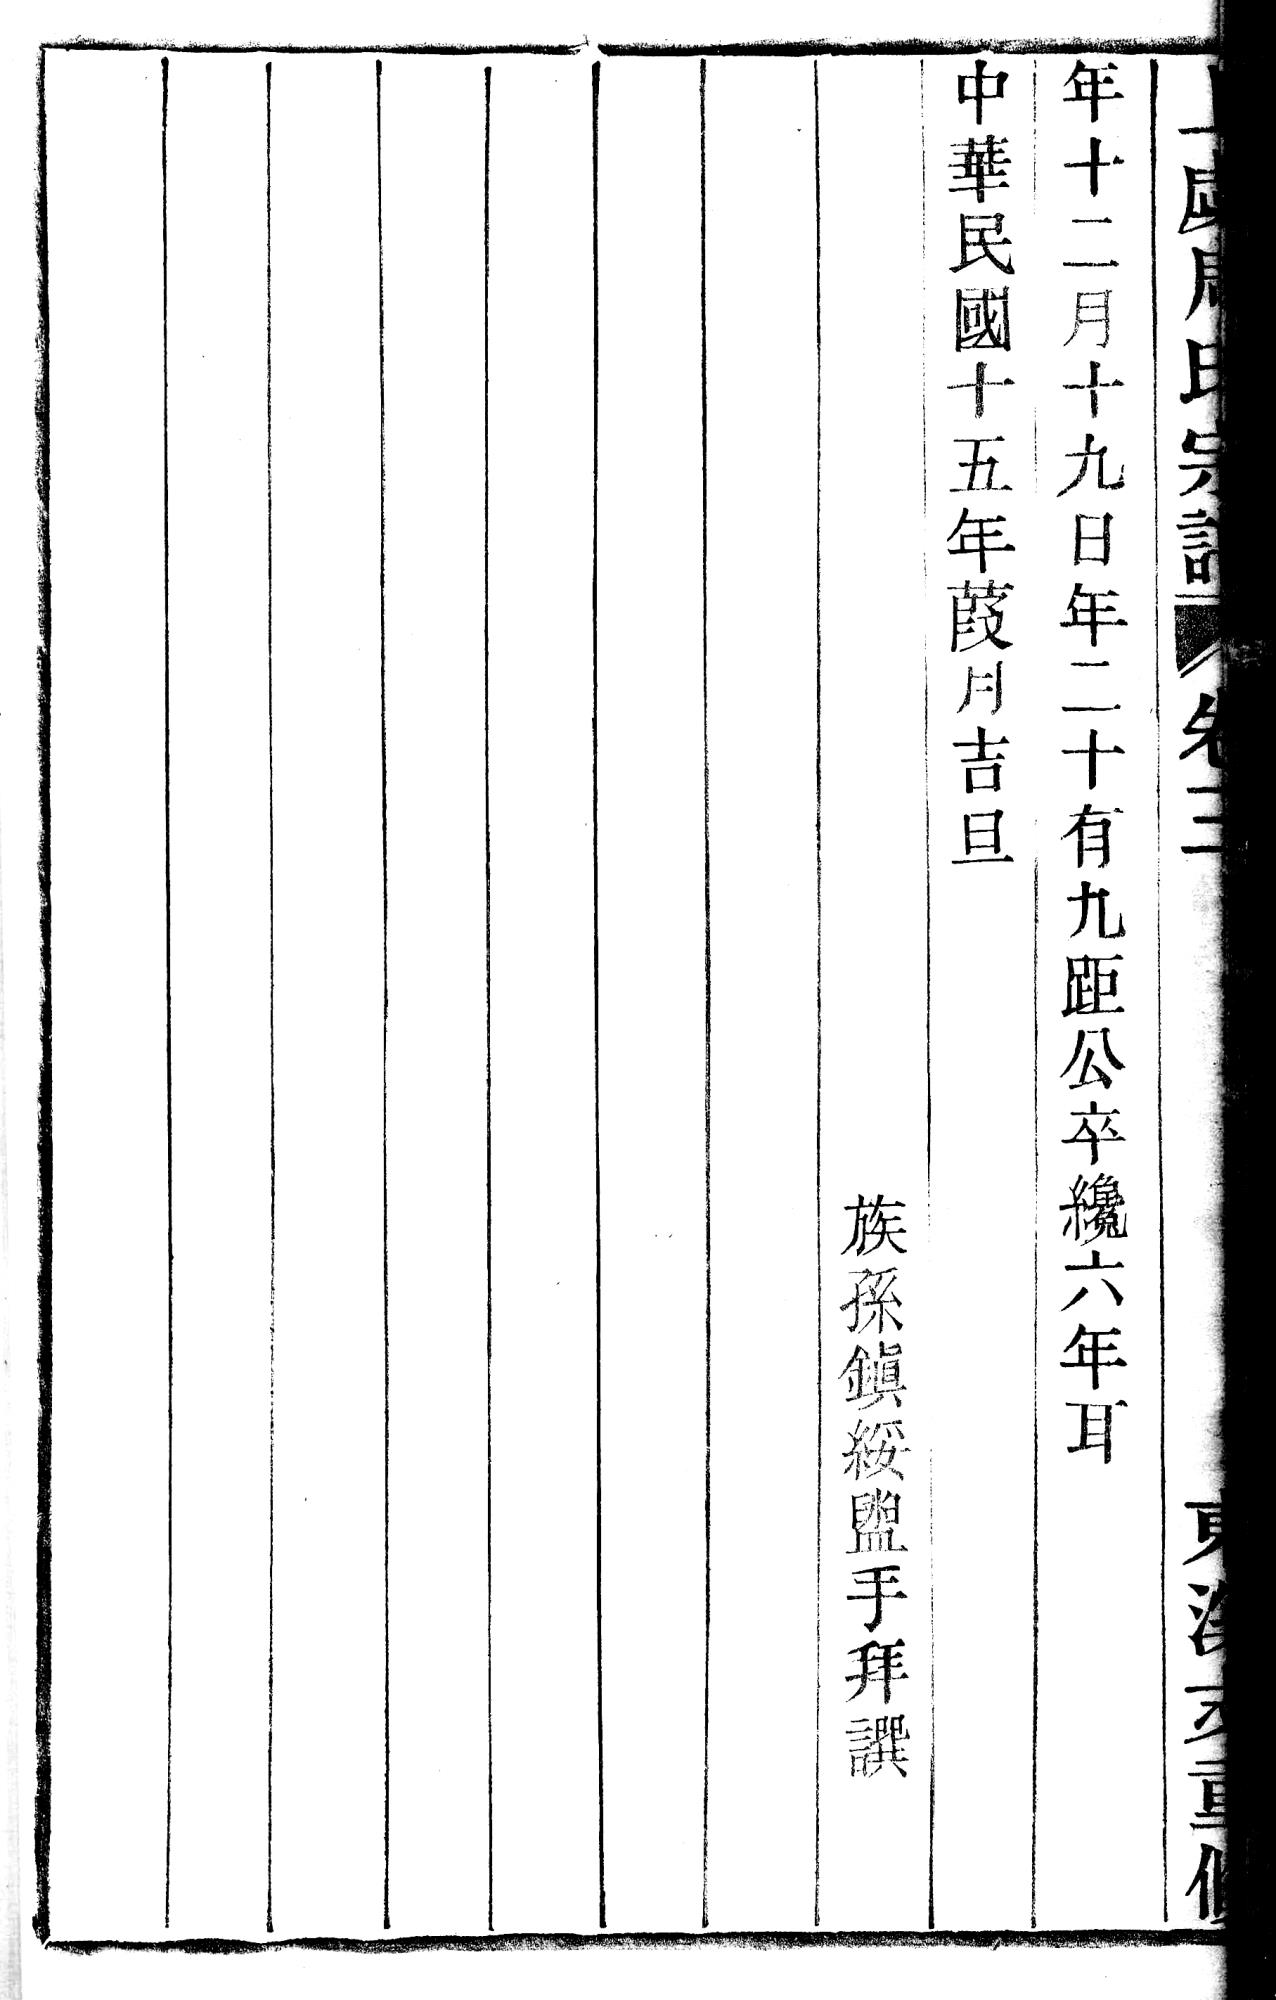 周氏宗譜 卷三 東 支重修
年十二月十九日年二十有九距公卒纔六年耳
中華民國十五年葭月吉旦
族孫鎮綏盥手拜譔